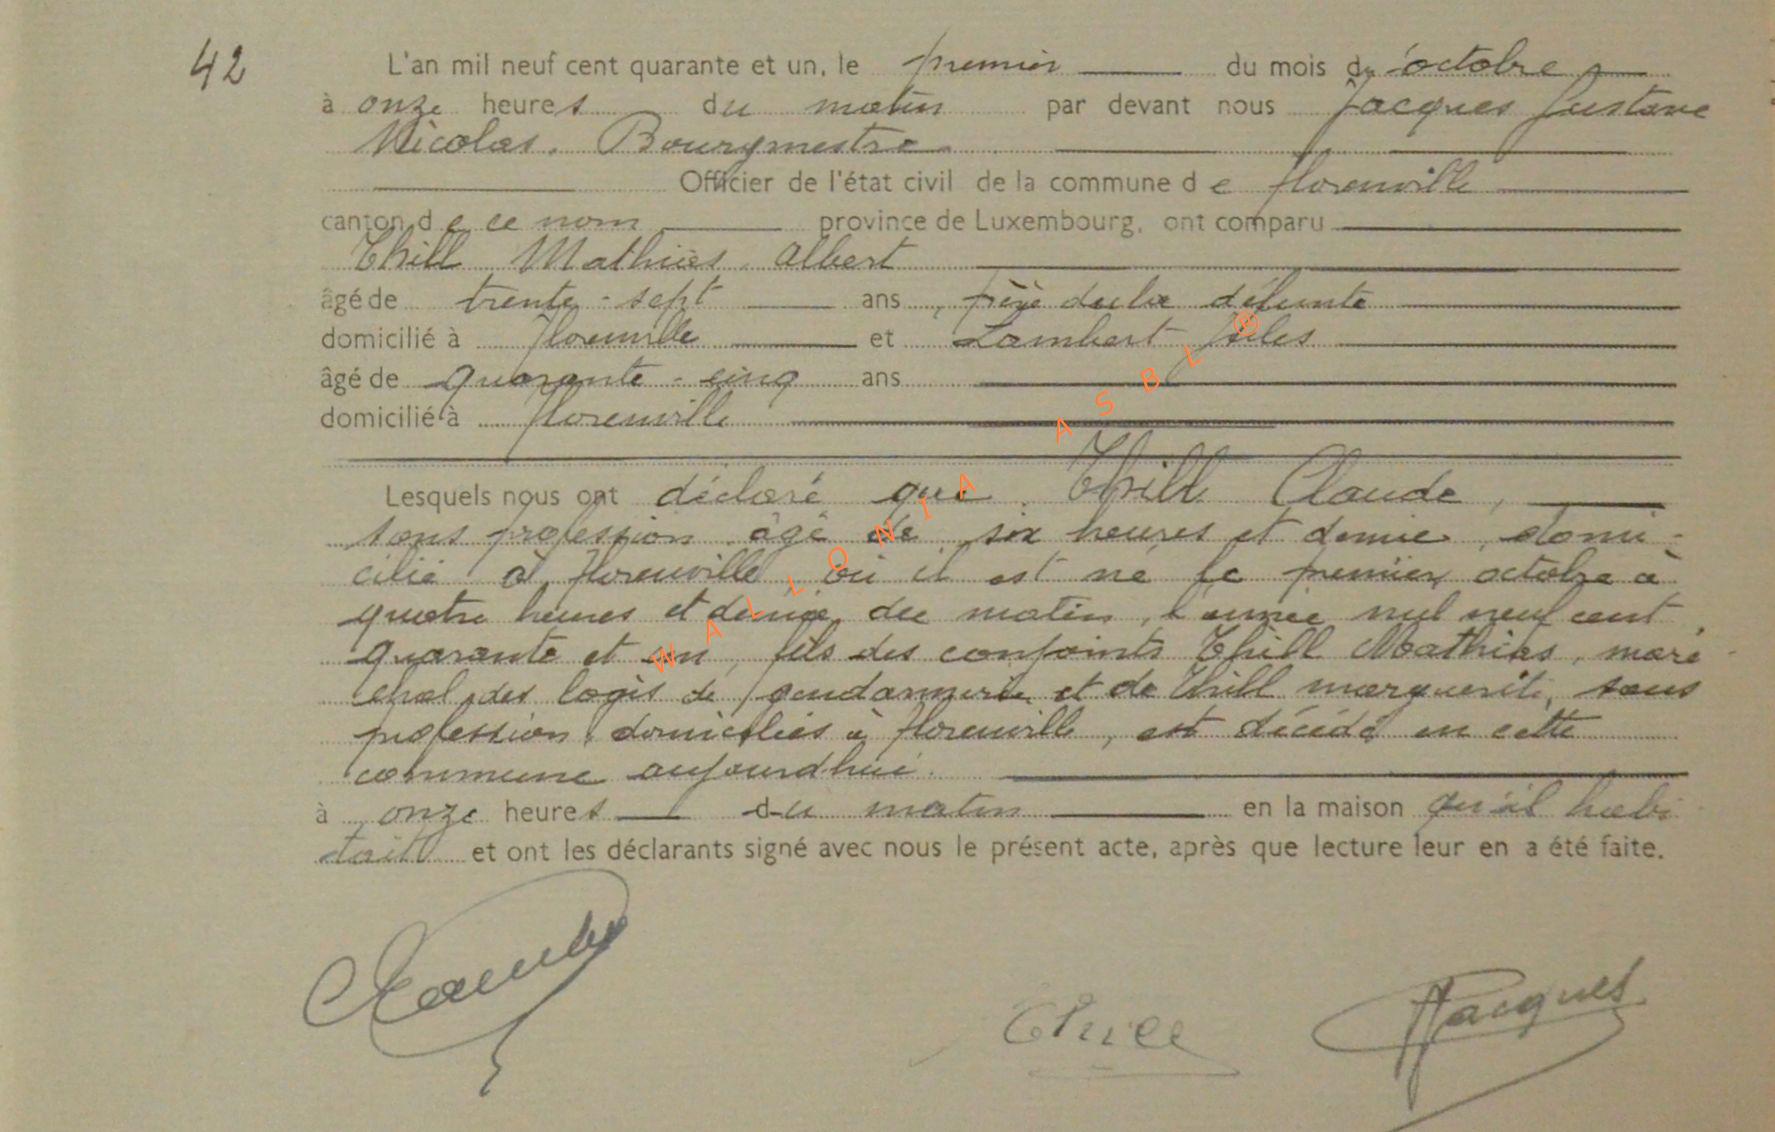 42
L'an mil neuf cent quarante et un, le premier du mois d'octobre
à onze heures du matin par devant nous Jacques Gustave
Nicolas, Bourgmestre
Officier de l'état civil de la commune de Florenville
canton de ce nom province de Luxembourg, ont comparu
Thill Mathias Albert
âgé de trente-sept ans, père du défunt
domicilié à Florenville et Lambert Jules
âgé de quarante-cinq ans
domicilié à Florenville
Lesquels nous ont déclaré que Thill Claude,
sans profession âgé de six heures et demie, domi-
cilié à Florenville où il est né le premier octobre à
quatre heures et demie du matin, l'année mil neuf cent
quarante et un, fils des conjoints Thill Mathias, maré-
chal des logis de gendarmerie et de Thill Marguerite, sans
profession, domiciliés à Florenville, est décédé en cette
commune aujourd'hui
à onze heures du matin en la maison qu'il habi-
tait et ont les déclarants signé avec nous le présent acte, après que lecture leur en a été faite.
Thill Jacques
WALLONIA ASBL ®